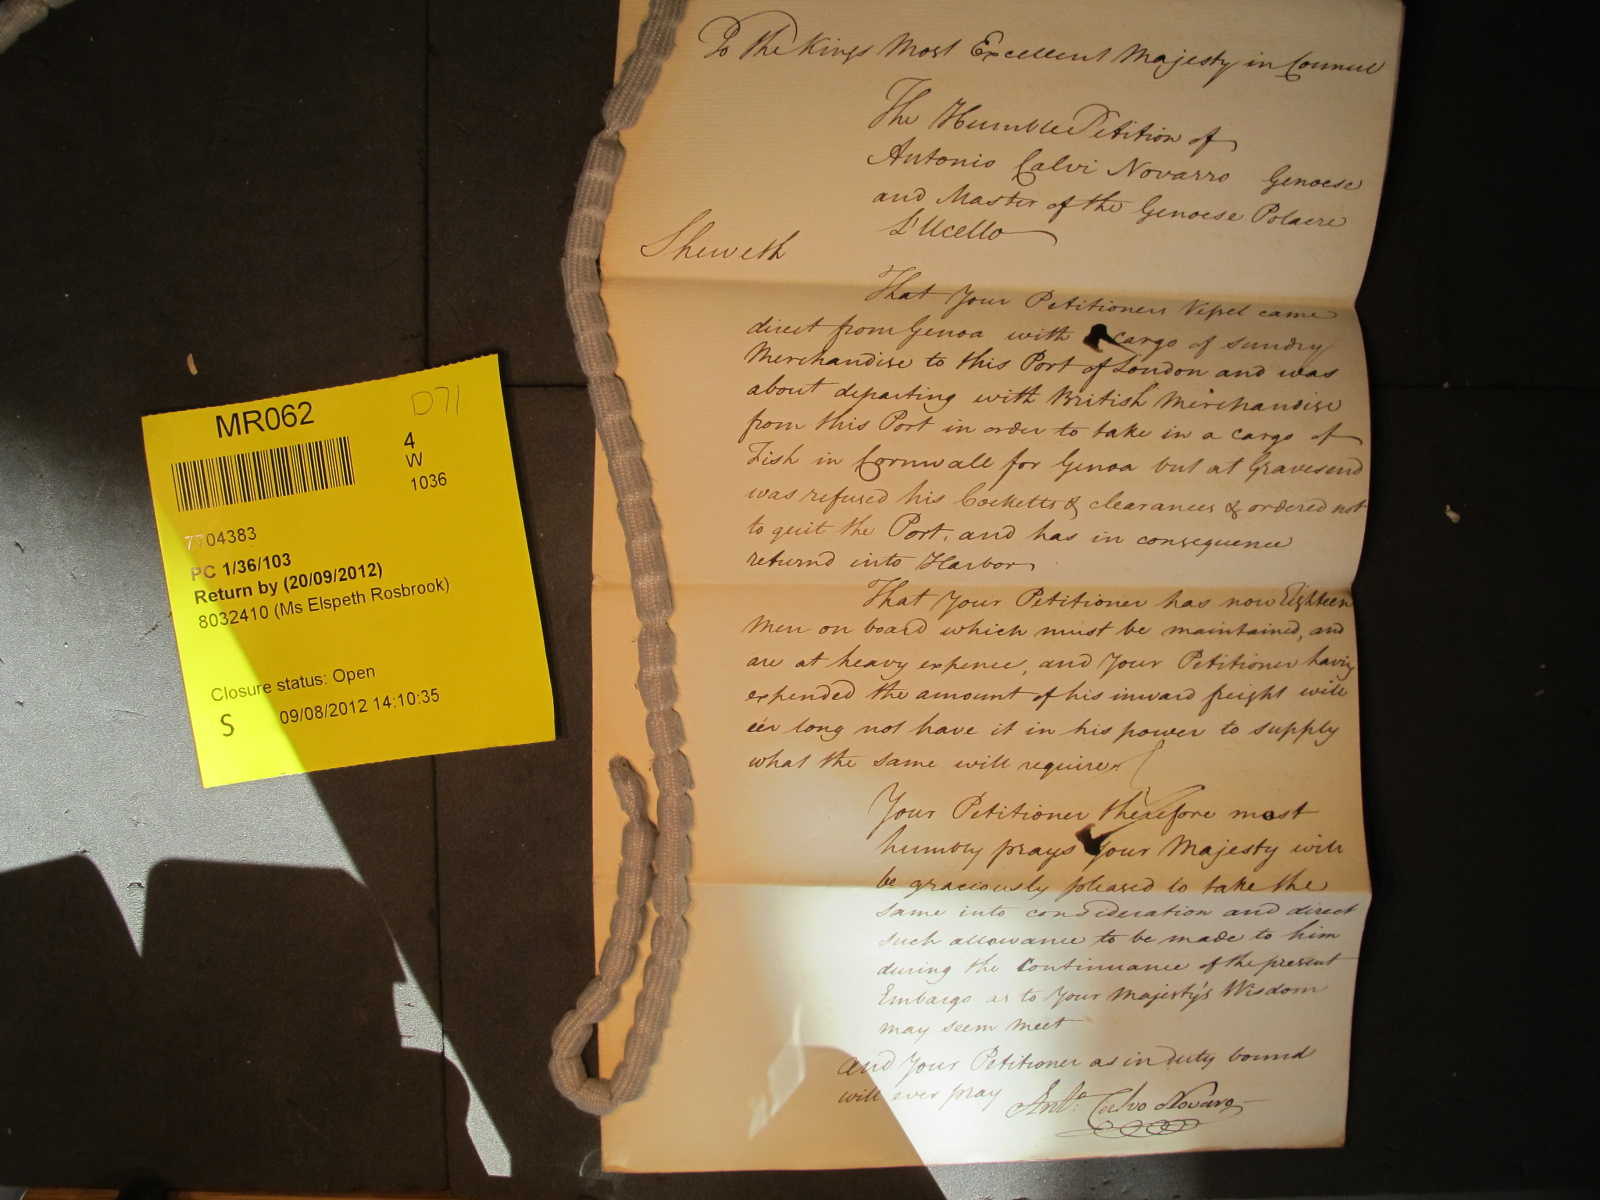 To The Kings Most Excellent Majesty in Council
The Humble Petition of
Antonio Calvi Novarro Genoese
and Master of the Genoese Polacre
L'Ucello
Sheweth
That Your Petitioners Vessel came
direct from Genoa with a cargo of sundry
Merchandise to this Port of London and was
about departing with British Merchandise
from this Port in order to take in a cargo of
Fish in Cornwall for Genoa but at Gravesend
was refused his Cocketts & clearances & ordered not
to quit the Port, and has in consequence
returnd into Harbor
That Your Petitioner has now Eighteen
Men on board which must be maintained, and
are at heavy expence, and Your Petitioner having
expended the amount of his inward freight will
eer long not have it in his power to supply
what the same will require
Your Petitioner therefore most
humbly prays Your Majesty will
be graciously pleased to take the
same into consideration and direct
such allowance to be made to him
during the Continuance of the present
Embargo as to Your Majesty's Wisdom
may seem meet
And Your Petitioner as in duty bound
will ever pray
Anto. Calvo Novaro
MR062
D71
4
W
1036
7704383
PC 1/36/103
Return by (20/09/2012)
8032410 (Ms Elspeth Rosbrook)
Closure status: Open
S 09/08/2012 14:10:35